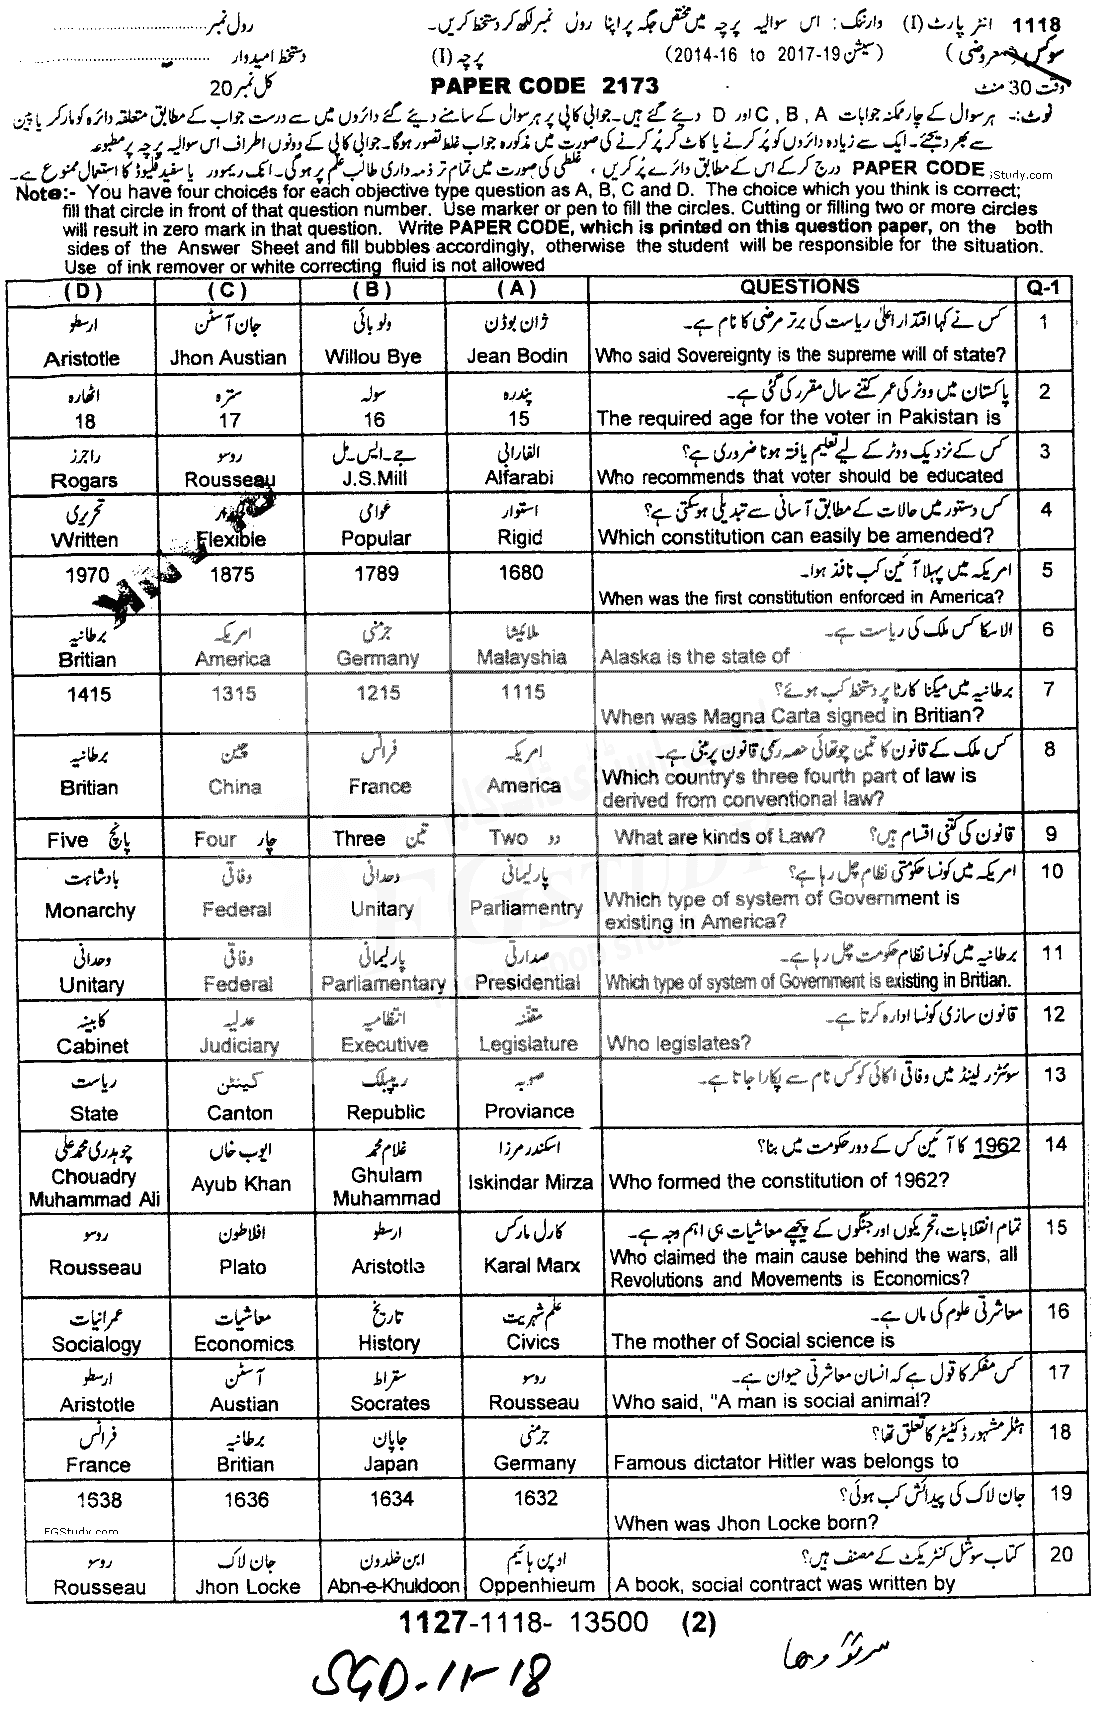 1118 انٹر پارٹ (I) وارننگ: اس سوالیہ پرچہ میں مختص جگہ پر اپنا رول نمبر لکھ کر دستخط کریں۔ رول نمبر
سوکس (معروضی) (سیشن 2017-19 to 2014-16) پرچہ (I) دستخط امیدوار
وقت 30 منٹ PAPER CODE 2173 کل نمبر 20
نوٹ:- ہر سوال کے چار ممکنہ جوابات A ، B ، C اور D دیئے گئے ہیں۔ جوابی کاپی پر ہر سوال کے سامنے دیئے گئے دائروں میں سے درست جواب کے مطابق متعلقہ دائرہ کو مارکر یا پین
سے بھر دیجئے۔ ایک سے زیادہ دائروں کو پُر کرنے یا کاٹ کر پُر کرنے کی صورت میں مذکورہ جواب غلط تصور ہوگا۔ جوابی کاپی کے دونوں اطراف اس سوالیہ پرچہ پر مطبوعہ
PAPER CODE درج کر کے اس کے مطابق دائرے پُر کریں، غلطی کی صورت میں تمام تر ذمہ داری طالب علم پر ہوگی۔ انک ریموور یا سفید فلیوڈ کا استعمال ممنوع ہے۔
iStudy.com
Note:- You have four choices for each objective type question as A, B, C and D. The choice which you think is correct;
fill that circle in front of that question number. Use marker or pen to fill the circles. Cutting or filling two or more circles
will result in zero mark in that question. Write PAPER CODE, which is printed on this question paper, on the both
sides of the Answer Sheet and fill bubbles accordingly, otherwise the student will be responsible for the situation.
Use of ink remover or white correcting fluid is not allowed
(D) (C) (B) (A) QUESTIONS Q-1
ارسطو جان آسٹن ولو بائی ژان بوڈن کس نے کہا اقتدار اعلیٰ ریاست کی برتر مرضی کا نام ہے۔ 1
Aristotle Jhon Austian Willou Bye Jean Bodin Who said Sovereignty is the supreme will of state?
اٹھارہ سترہ سولہ پندرہ پاکستان میں ووٹر کی عمر کتنے سال مقرر کی گئی ہے۔ 2
18 17 16 15 The required age for the voter in Pakistan is
راجرز روسو جے۔ایس۔مل الفارابی کس کے نزدیک ووٹر کے لیے تعلیم یافتہ ہونا ضروری ہے؟ 3
Rogars Rousseau J.S.Mill Alfarabi Who recommends that voter should be educated
تحریری عوامی استوار کس دستور میں حالات کے مطابق آسانی سے تبدیلی ہو سکتی ہے؟ 4
Written Flexible Popular Rigid Which constitution can easily be amended?
1970 1875 1789 1680 امریکہ میں پہلا آئین کب نافذ ہوا۔ 5
When was the first constitution enforced in America?
برطانیہ امریکہ جرمنی ملائیشا الاسکا کس ملک کی ریاست ہے۔ 6
Britian America Germany Malayshia Alaska is the state of
1415 1315 1215 1115 برطانیہ میں میگنا کارٹا پر دستخط کب ہوئے؟ 7
When was Magna Carta signed in Britian?
برطانیہ چین فرانس امریکہ کس ملک کے قانون کا تین چوتھائی حصہ رسمی قانون پر مبنی ہے۔ 8
Britian China France America Which country's three fourth part of law is
derived from conventional law?
Five پانچ Four چار Three تین Two دو What are kinds of Law? قانون کی کتنی اقسام ہیں؟ 9
بادشاہت وفاقی وحدانی پارلیمانی امریکہ میں کونسا حکومتی نظام چل رہا ہے؟ 10
Monarchy Federal Unitary Parliamentry Which type of system of Government is
existing in America?
وحدانی وفاقی پارلیمانی صدارتی برطانیہ میں کونسا نظام حکومت چل رہا ہے۔ 11
Unitary Federal Parliamentary Presidential Which type of system of Government is existing in Britian.
کابینہ عدلیہ انتظامیہ مقننہ قانون سازی کونسا ادارہ کرتا ہے۔ 12
Cabinet Judiciary Executive Legislature Who legislates?
ریاست کینٹن ریپبلک صوبہ سوئٹزرلینڈ میں وفاقی اکائی کو کس نام سے پکارا جاتا ہے۔ 13
State Canton Republic Proviance
چوہدری محمد علی ایوب خاں غلام محمد اسکندر مرزا 1962 کا آئین کس کے دور حکومت میں بنا؟ 14
Chouadry Muhammad Ali Ayub Khan Ghulam Muhammad Iskindar Mirza Who formed the constitution of 1962?
روسو افلاطون ارسطو کارل مارکس تمام انقلابات، تحریکوں اور جنگوں کے پیچھے معاشیات ہی اہم وجہ ہے۔ 15
Rousseau Plato Aristotle Karal Marx Who claimed the main cause behind the wars, all
Revolutions and Movements is Economics?
عمرانیات معاشیات تاریخ علم شہریت معاشرتی علوم کی ماں ہے۔ 16
Socialogy Economics History Civics The mother of Social science is
ارسطو آسٹن سقراط روسو کس مفکر کا قول ہے کہ انسان معاشرتی حیوان ہے۔ 17
Aristotle Austian Socrates Rousseau Who said, "A man is social animal?
فرانس برطانیہ جاپان جرمنی ہٹلر مشہور ڈکٹیٹر کا تعلق تھا؟ 18
France Britian Japan Germany Famous dictator Hitler was belongs to
1638 1636 1634 1632 جان لاک کی پیدائش کب ہوئی؟ 19
FGStudy.com When was Jhon Locke born?
روسو جان لاک ابن خلدون اوپن ہائیم کتاب سوشل کنٹریکٹ کے مصنف ہیں؟ 20
Rousseau Jhon Locke Abn-e-Khuldoon Oppenhieum A book, social contract was written by
1127-1118- 13500 (2)
سرگودھا
SGD-11-18